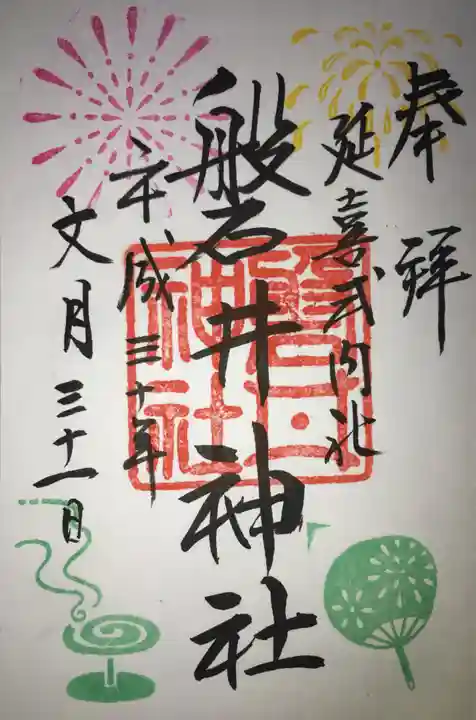 奉拝
延喜式内社
磐井神社
平成三十年
文月三十一日
磐井神社